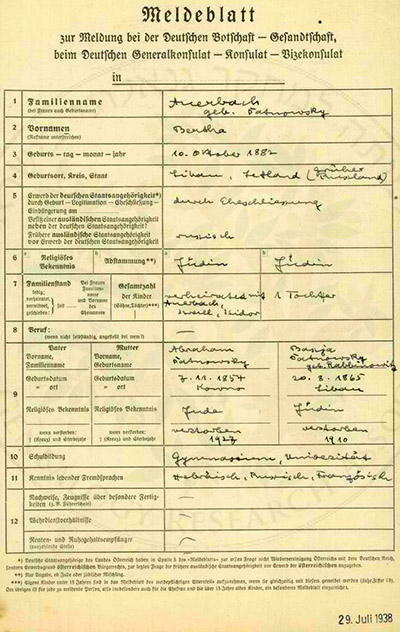 Meldeblatt
zur Meldung bei der Deutschen Botschaft – Gesandtschaft,
beim Deutschen Generalkonsulat – Konsulat – Vizekonsulat
in
1 Familienname
(bei Frauen auch Geburtsname)
Auerbach
geb. Tatnowsky
2 Vornamen
(Rufname unterstreichen)
Bertha
3 Geburts – tag – monat – jahr
10. Oktober 1882
4 Geburtsort, Kreis, Staat
Libau, Lettland (früher Russland)
5 Erwerb der deutschen Staatsangehörigkeit*)
durch Geburt – Legitimation – Eheschliessung –
Einbürgerung am
Besitz einer ausländischen Staatsangehörigkeit
neben der deutschen Staatsangehörigkeit?
Frühere ausländische Staatsangehörigkeit
vor Erwerb der deutschen Staatsangehörigkeit?
durch Eheschliessung
russisch
6 a Religiöses Bekenntnis b Abstammung**)
a Jüdin b Jüdin
7 Familienstand
ledig;
verheiratet,
verwitwet,
geschieden
seit
Bei Frauen
Familienname
und Vorname
des
Ehemannes
Gesamtzahl
der Kinder
(Söhne, Töchter)***)
verheiratet mit
Auerbach,
Isidor
1 Tochter
8 Beruf:
(wenn nicht selbständig, angestellt bei wem?)
—
9 Vater
Vorname,
Familienname
Mutter
Vorname,
Geburtsname
Abraham
Tatnowsky
Tatnowsky
geb. Rabbinowitz
Geburtsdatum
" ort
Geburtsdatum
" ort
7. 11. 1857
Kowno
20. 8. 1865
Libau
Religiöses Bekenntnis
Religiöses Bekenntnis
Jude
Jüdin
wenn verstorben:
† (Kreuz) und Sterbejahr
wenn verstorben:
† (Kreuz) und Sterbejahr
verstorben
1927
verstorben
1910
10 Schulbildung
Gymnasium, Universität
11 Kenntnis lebender Fremdsprachen
Hebräisch, Russisch, Französisch
12 Nachweise, Zeugnisse über besondere Fertigkeiten
(z. B. Führerschein)
—
Wehrdienstverhältnisse
—
Renten- und Ruhegehaltsempfänger
(auszahlende Stelle)
—
29. Juli 1938